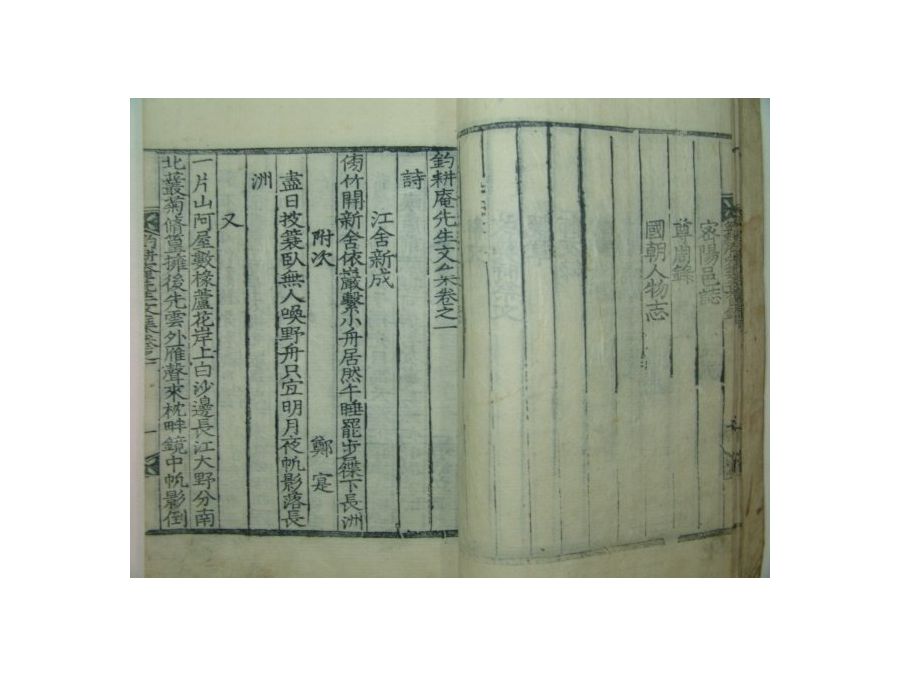 密陽邑誌
尊周錄
國朝人物志
釣耕庵先生文集卷之一
詩
江舍新成
倚竹開新舍依巖繫小舟居然午睡罷步屧下長洲
附次 鄭寔
盡日披蓑臥無人喚野舟只宜明月夜帆影落長
洲
又
一片山阿屋數椽蘆花岸上白沙邊長江大野分南
北叢菊脩篁擁後先雲外雁聲來枕畔鏡中帆影倒